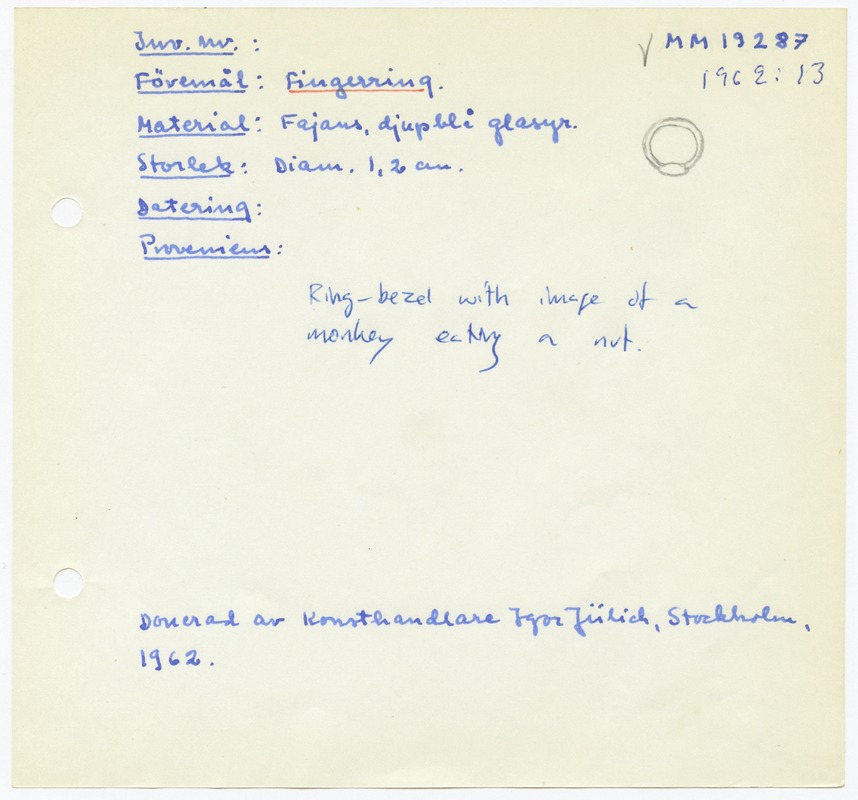 Inv. nr. :
√ MM 19287
1962:13
Föremål: Fingerring.
Material: Fajans, djupblå glasyr.
Storlek: Diam. 1,2 cm.
Datering:
Proveniens:
Ring-bezel with image of a
monkey eating a nut.
Donerad av Konsthandlare Igor Jülich, Stockholm,
1962.